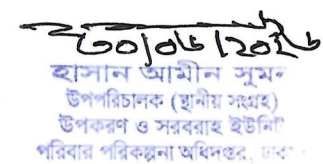 ৩০/০৬/২০২৬
হাসান আমীন সুমন
উপপরিচালক (স্থানীয় সংগ্রহ)
উপকরণ ও সরবরাহ ইউনিট
পরিবার পরিকল্পনা অধিদপ্তর, ঢাকা